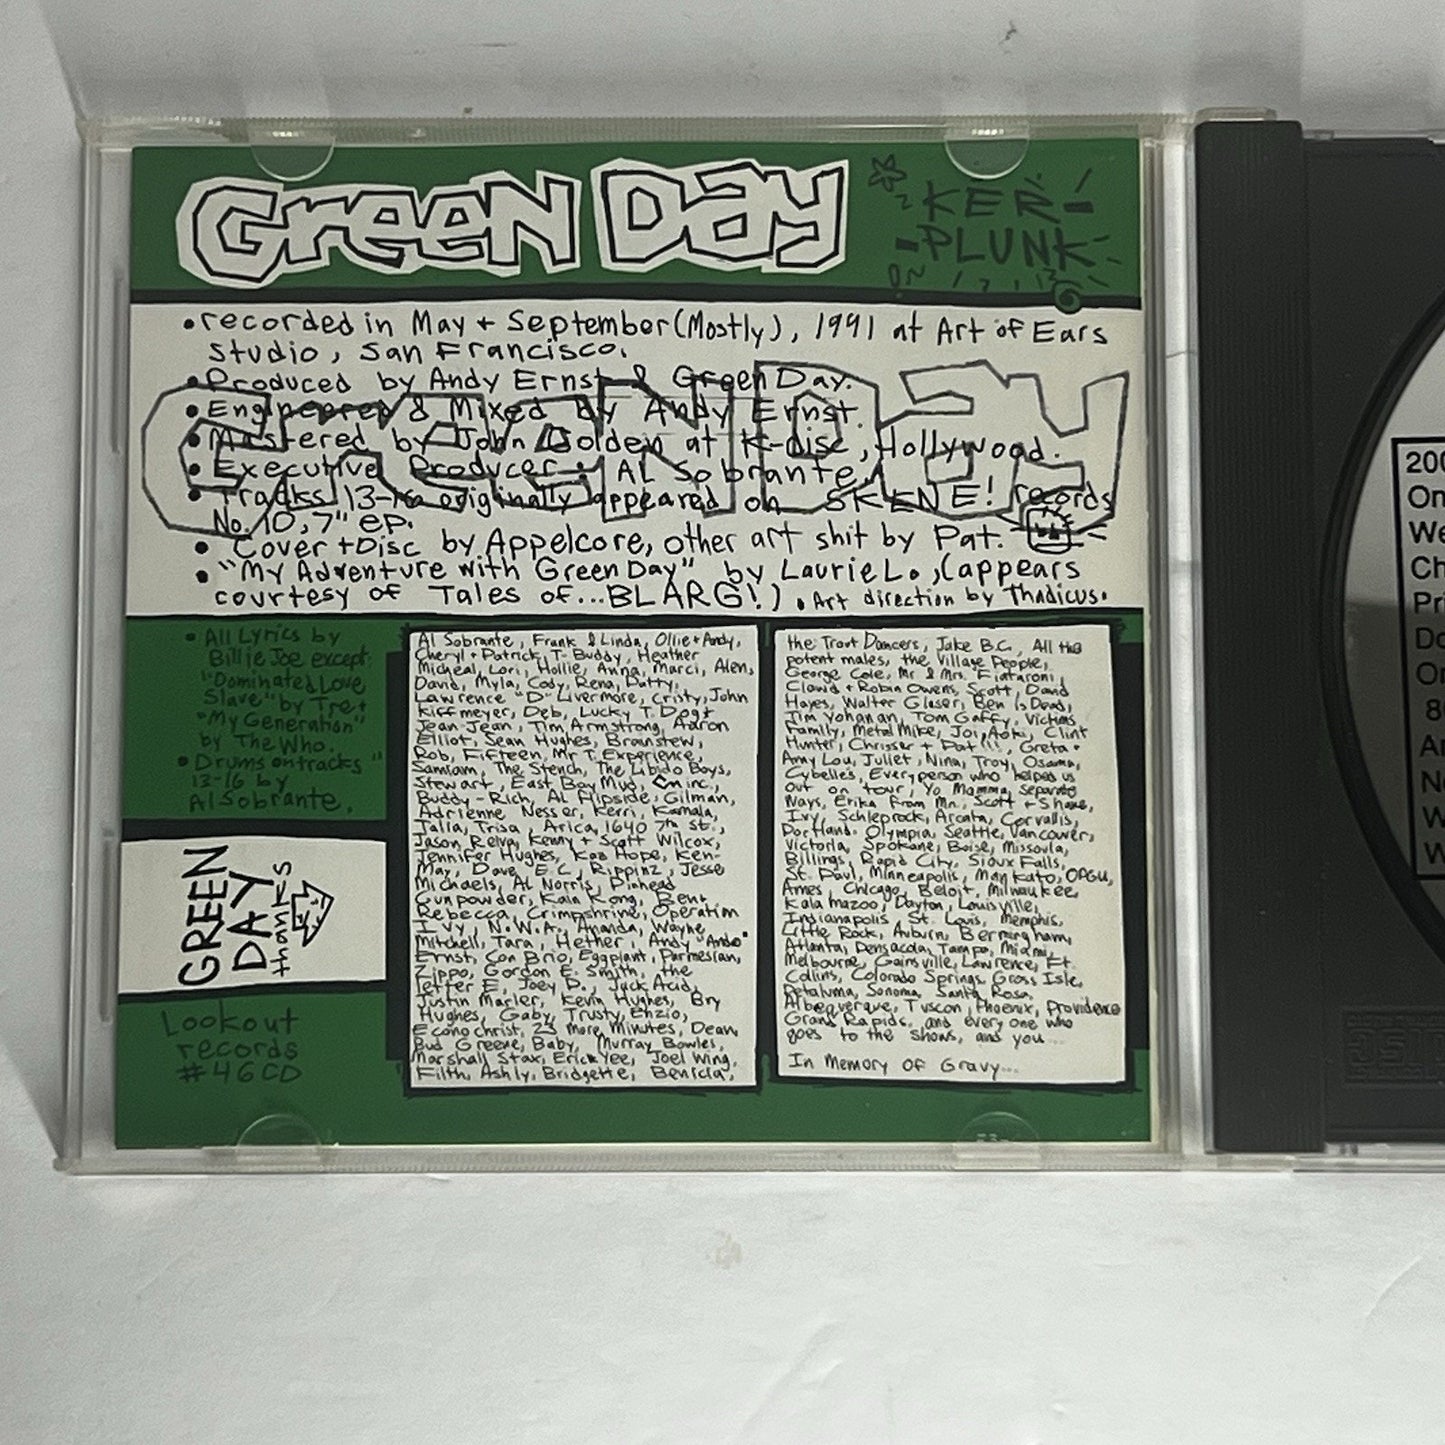 Green Day
KER-
-PLUNK
• recorded in May + September (Mostly), 1991 at Art of Ears
Studio, San Francisco.
• Produced by Andy Ernst & Green Day.
• Engineered & Mixed by Andy Ernst.
• Mastered by John Golden at K-disc, Hollywood.
• Executive Producer: AL Sobrante,
• Tracks 13-16 originally appeared on SKENE! records
No. 10, 7" ep.
• Cover + Disc by Appelcore, other art shit by Pat.
• "My Adventure with Green Day" by Laurie L., (appears
courtesy of Tales of...BLARG!) • Art direction by Thadicus.
Green Day
• All Lyrics by
Billie Joe except
"Dominated Love
Slave" by Tre +
"My Generation"
by The Who.
• Drums on tracks
13-16 by
Al Sobrante.
GREEN
DAY
thanks
Lookout
records
#46CD
Al Sobrante, Frank & Linda, Ollie + Andy,
Cheryl + Patrick, T-Buddy, Heather
Micheal, Lori, Hollie, Anna, Marci, Alen,
David, Myla, Cody, Rena, Dutty,
Lawrence "D" Livermore, Cristy, John
Kiffmeyer, Deb, Lucky T. Dog +
Jean Jean, Tim Armstrong, Aaron
Elliot, Sean Hughes, Brainstew,
Rob, Fifteen, Mr T. Experience,
Samiam, The Stench, The Libido Boys,
Stewart, East Bay Mud, Cn inc.,
Buddy-Rich, AL Flipside, Gilman,
Adrienne Nesser, Kerri, Kamala,
Talia, Trisa, Arica, 1640 7th St.,
Jason Relva, Kenny + Scott Wilcox,
Jennifer Hughes, Kaz Hope, Ken-
May, Dave E.C., Rippinz, Jesse
Michaels, Al Norris, Pinhead
Gunpowder, Kain Kong, Ben +
Rebecca, Crimpshrine, Operation
Ivy, N.W.A., Ananda, Wayne
Mitchell, Tara, Hether, Andy "Ando"
Ernst, Con Brio, Eggplant, Parmesian,
Zippo, Gordon E. Smith, the
letter E, Joey P., Jack Acid,
Justin Marler, Kevin Hughes, Bry
Hughes, Gaby, Trusty, Enzio,
Econochrist, 23 More Minutes, Dean,
Bud Greene, Baby, Murray Bowles,
Marshall Stax, Erick Yee, Joel Wing,
Filth, Ashly, Bridgette, Benicia,
the Trout Dancers, Jake B.C., All the
potent males, the Village People,
George Cole, Mr & Mrs. Fiataroni,
Clawid + Robin Owens, Scott, David
Hayes, Walter Glaser, Ben is Dead,
Tim Yohanan, Tom Gaffy, Victims
Family, Metal Mike, Joi, Aoki, Clint
Hunter, Chrisser + Pat!!!, Greta +
Amy Lou, Juliet, Nina, Troy, Osama,
Cybelles, Every person who helped us
out on tour, Yo Momma, Separate
Ways, Erika from Mn., Scott + Shane,
Ivy, Schleprock, Arcata, Corvallis,
Portland, Olympia, Seattle, Vancouver,
Victoria, Spokane, Boise, Missoula,
Billings, Rapid City, Sioux Falls,
St. Paul, Minneapolis, Mankato, OPGU,
Ames, Chicago, Beloit, Milwaukee,
Kalamazoo, Dayton, Louisville,
Indianapolis, St. Louis, Memphis,
Little Rock, Auburn, Bermingham,
Atlanta, Pensacola, Tampa, Miami,
Melbourne, Gainsville, Lawrence, Ft.
Collins, Colorado Springs, Gross Isle,
Petaluma, Sonoma, Santa Rosa,
Albequerque, Tuscon, Phoenix, Providence
Grand Rapids, and every one who
goes to the shows, and you...
In Memory of Gravy...
200
On
We
Ch
Pri
Do
Or
8
Ar
No
W
W